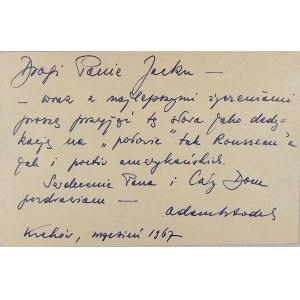 Drogi Panie Jacku —
— wraz z najlepszymi życzeniami
proszę przyjąć tę słowa jako dedy-
kację na „ " tak Rousseau'a
jak i poetów amerykańskich.
Serdecznie Pana i Cały Dom
pozdrawiam —
Kraków, 1967